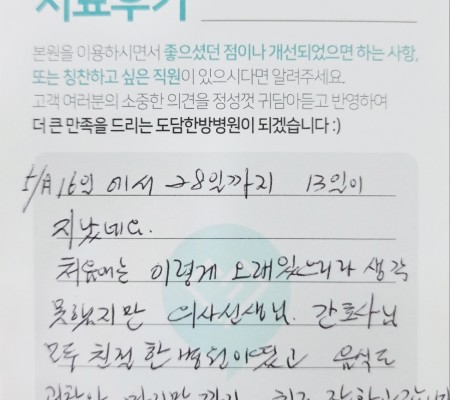 치료후기
본원을 이용하시면서 좋으셨던 점이나 개선되었으면 하는 사항,
또는 칭찬하고 싶은 직원이 있으시다면 알려주세요.
고객 여러분의 소중한 의견을 정성껏 귀담아듣고 반영하여
더 큰 만족을 드리는 도담한방병원이 되겠습니다 :)
5/月 16일 에서 28일까지 13일이
지났네요.
처음에는 이렇게 오래있으리라 생각
못했지만 의사선생님. 간호사님
모두 친절한 병원이였고 음식도